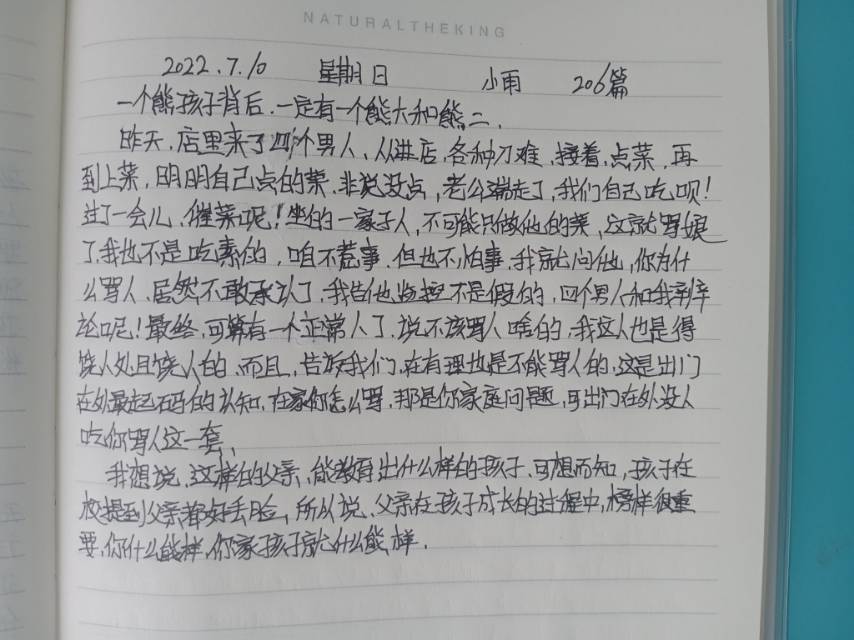 NATURALTHEKING
2022.7.10 星期日 小雨 206篇
一个熊孩子背后.一定有一个熊大和熊二.
昨天.店里来了四个男人,从进店,各种刁难,接着.点菜.再
到上菜,明明自己点的菜.非说没点,老公端走了,我们自己吃呗!
过了一会儿.催菜呢!坐的一家子人,不可能只做他的菜,这就骂娘
了,我也不是吃素的,咱不惹事.但也不怕事.我就问他,你为什
么骂人.居然不敢承认了,我告他监控不是假的,四个男人和我辩
论呢!最终,可算有一个正常人了.说不该骂人啥的,我这人也是得
饶人处且饶人的.而且,告诉我们,在有理也是不能骂人的,这是出门
在外最起码的认知,在家你怎么骂,那是你家庭问题,可出门在外没人
吃你骂人这一套,
我想说,这样的父亲,能教育出什么样的孩子.可想而知,孩子在
校提到父亲都好丢脸,所以说,父亲在孩子成长的过程中,榜样很重
要,你什么熊样,你家孩子就什么熊样.